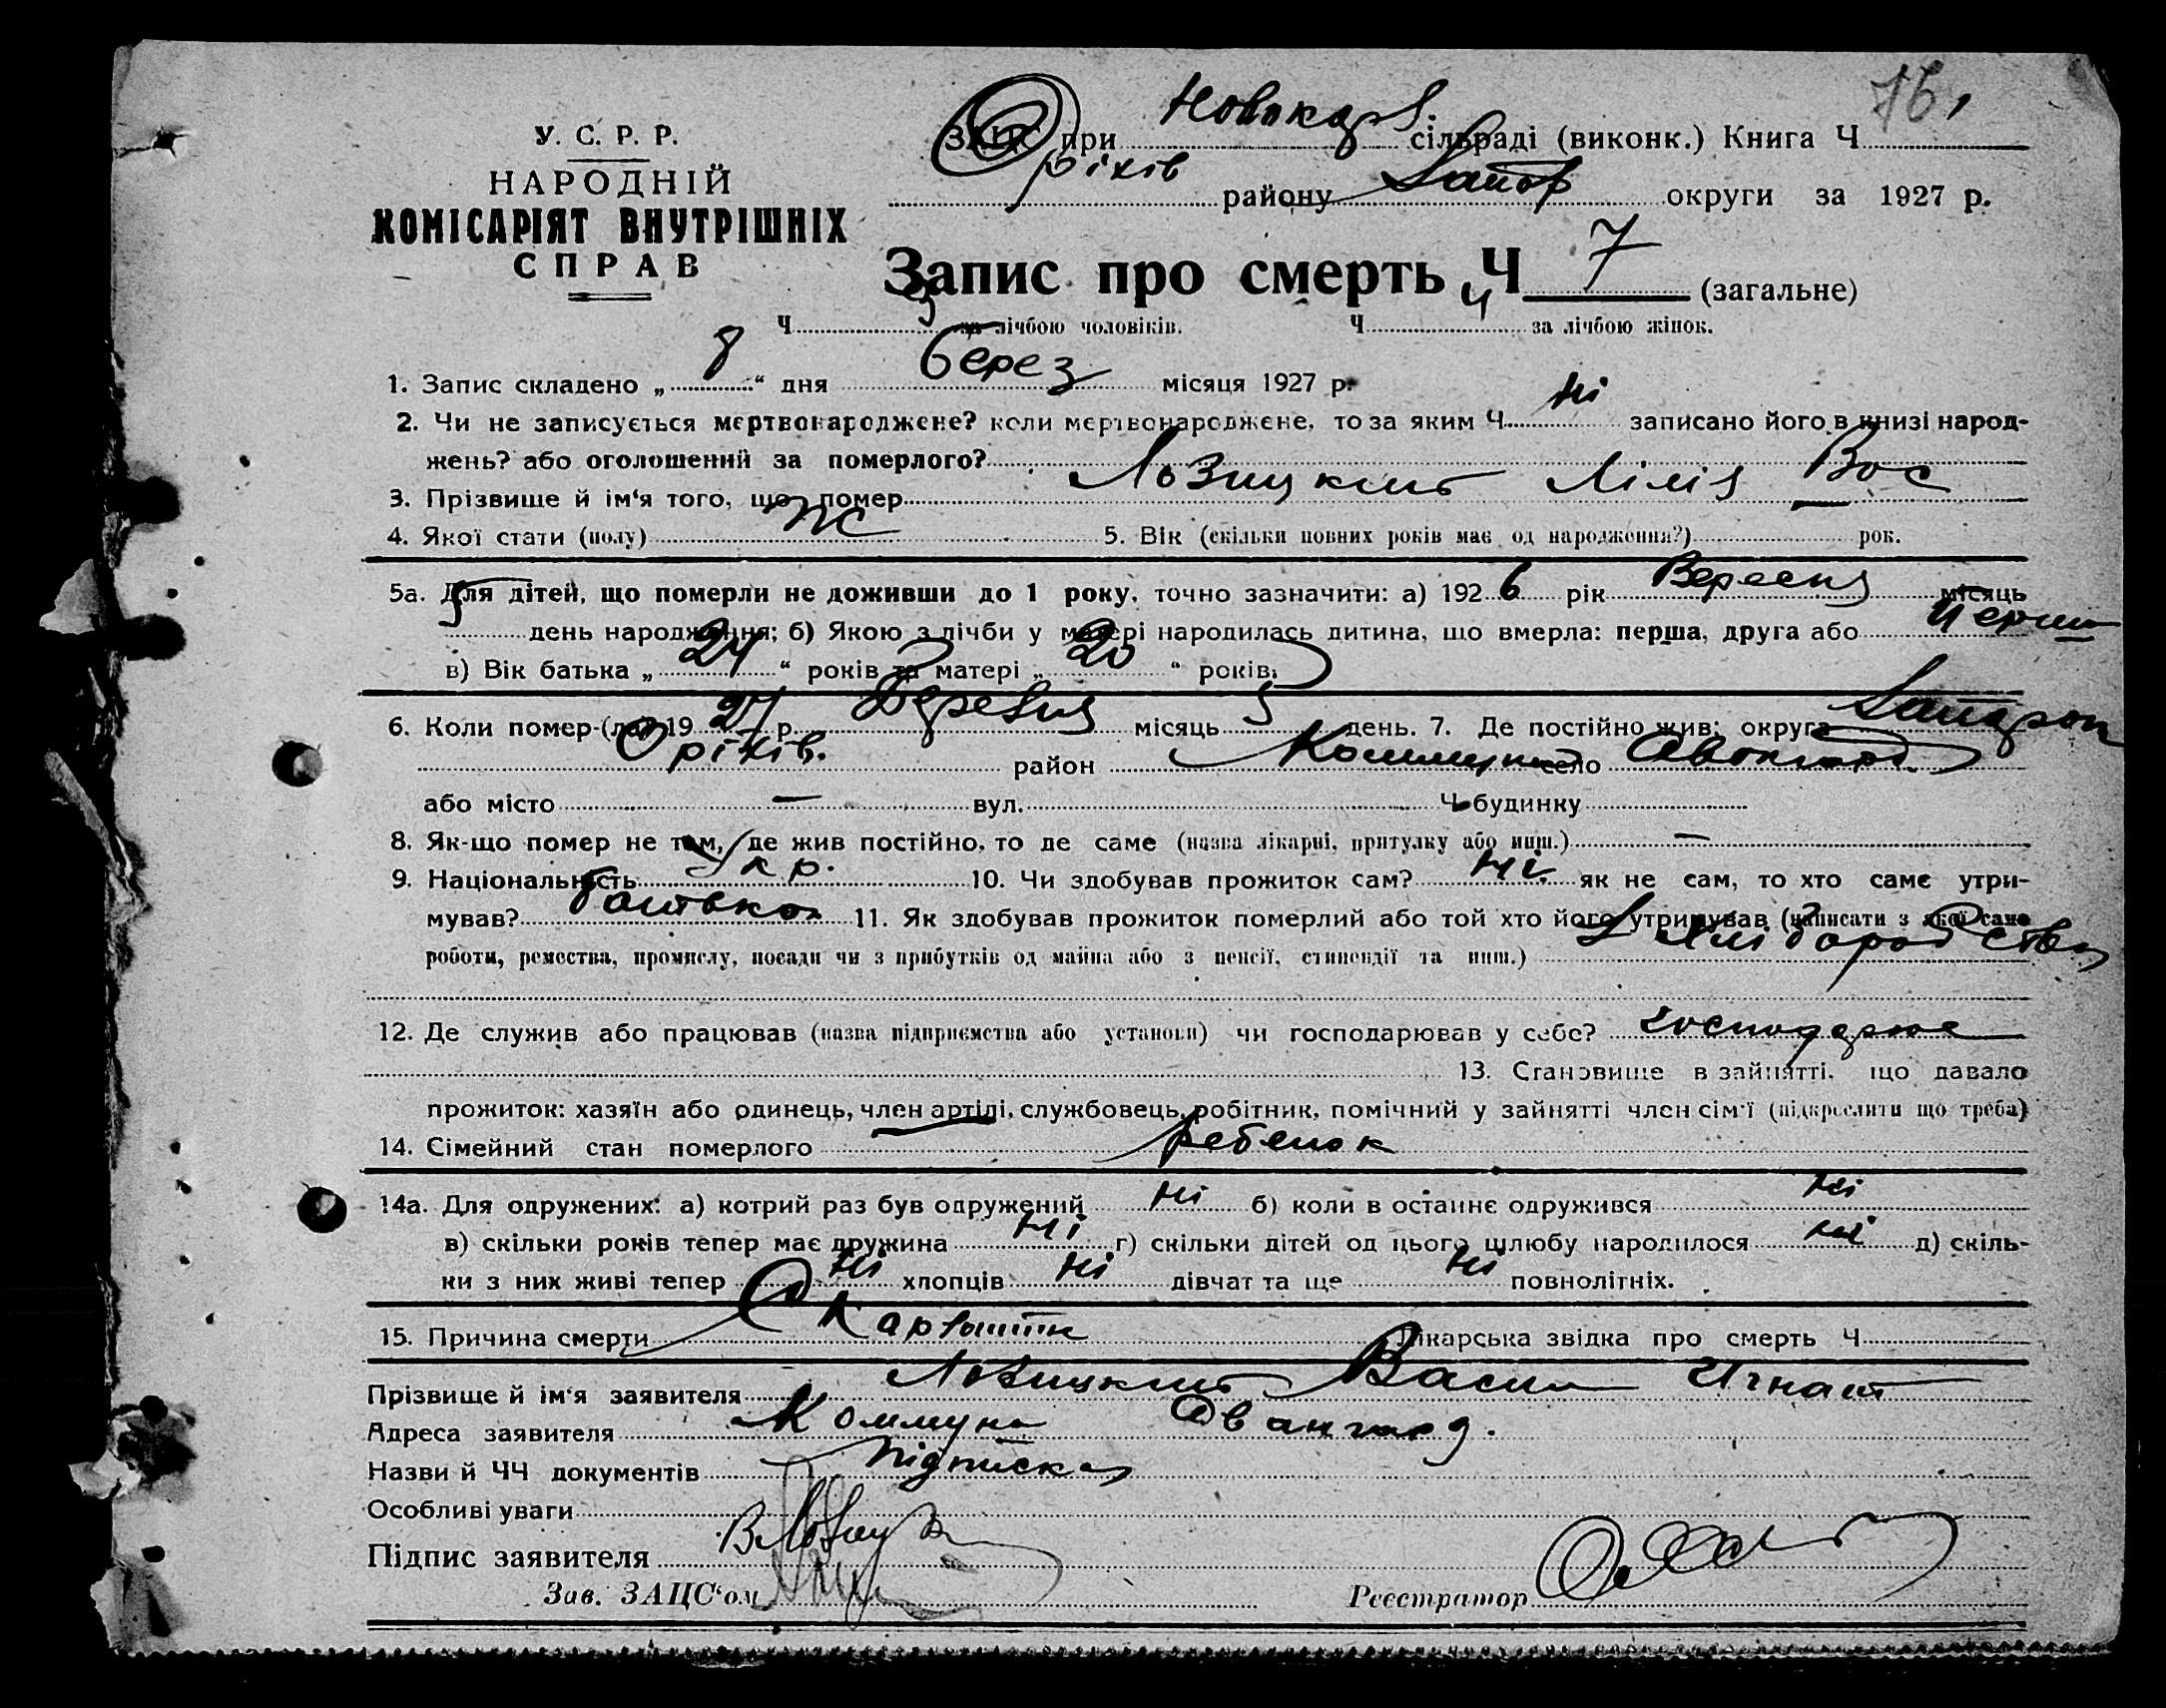 76
У. С. Р. Р.
НАРОДНІЙ
КОМІСАРІЯТ ВНУТРІШНІХ
СПРАВ
ЗАЦС при сільраді (виконк.) Книга Ч
Оріхів району Запор округи за 1927 р.
Запис про смерть Ч 7 (загальне)
Ч 3 за лічбою чоловіків. Ч 4 за лічбою жінок.
1. Запис складено „ 8 “ дня берез місяця 1927 р.
2. Чи не записується мертвонароджене? коли мертвонароджене, то за яким Ч ні записано його в книзі народ-
жень? або оголошений за померлого?
3. Прізвище й ім‘я того, що помер Лілія Вас
4. Якої стати (полу) ж 5. Вік (скільки повних років має од народження?) рок.
5а. Для дітей, що померли не доживши до 1 року, точно зазначити: а) 192 6 рік Вересня місяць
5 день народження; б) Якою з лічби у матері народилась дитина, що вмерла: перша, друга або перша
в) Вік батька „ 24 “ років та матері „ 20 “ років.
6. Коли помер-(ла)? 19 27 р. місяць 5 день. 7. Де постійно жив: округа
Оріхів. район Коммуна село
або місто — вул. Ч будинку
8. Як-що помер не там, де жив постійно, то де саме (назва лікарні, притулку або инш.) —
9. Національність Укр. 10. Чи здобував прожиток сам? ні. як не сам, то хто саме утри-
мував? батько 11. Як здобував прожиток померлий або той хто його утримував (написати з якої саме
роботи, ремества, промислу, посади чи з прибутків од майна або з пенсії, стипендії та инш.)
12. Де служив або працював (назва підприємства або установи) чи господарював у себе?
13. Становище в зайнятті, що давало
прожиток: хазяїн або одинець, член артілі, службовець, робітник, помічний у зайнятті член сім‘ї (підкреслити що треба)
14. Сімейний стан померлого ребенок
14а. Для одружених: а) котрий раз був одружений ні б) коли в останнє одружився ні
в) скільки років тепер має дружина ні г) скільки дітей од цього шлюбу народилося ні д) скіль-
ки з них живі тепер ні хлопців ні дівчат та ще ні повнолітніх.
15. Причина смерти Лікарська звідка про смерть Ч
Прізвище й ім‘я заявителя Васил Игнат
Адреса заявителя Коммуна Авангард.
Назви й ЧЧ документів підписка
Особливі уваги
Підпис заявителя
Зав. ЗАЦС‘ом Реєстратор